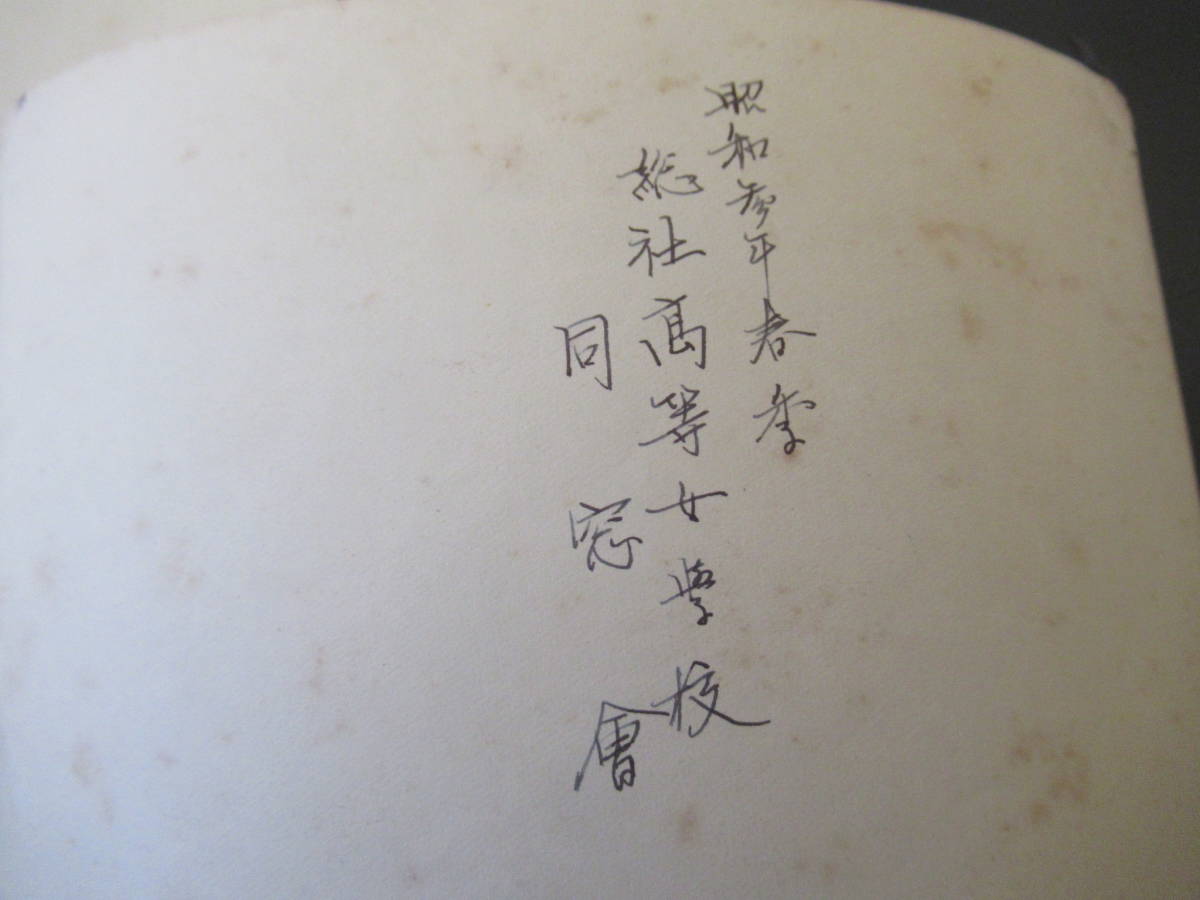 昭和参年春季
総社高等女學校
同窓會